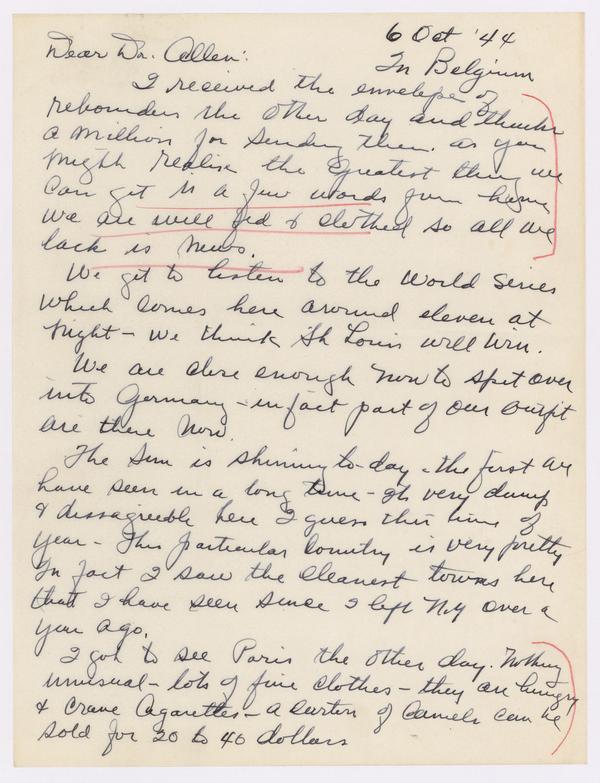 6 Oct '44
Dear Dr. Allen: In Belgium
I received the envelope of
rebounders the other day and thanks
a million for sending them. As you
might realise the greatest thing we
can get is a few words from home
We are well fed & clothed so all we
lack is news.
We get to listen to the World Series
which comes here around eleven at
night – we think St Louis will win.
We are close enough now to spit over
into Germany – in fact part of our outfit
are there now.
The Sun is shining to-day – the first we
have seen in a long time – Its very damp
& dissagreeble here I guess this time of
year – This particular Country is very pretty
In fact I saw the cleanest towns here
that I have seen since I left N.Y over a
year ago.
I got to see Paris the other day. Nothing
unusual – lots of fine clothes – they are hungry
& crave Cigarettes – a carton of Camels can be
sold for 20 to 40 dollars